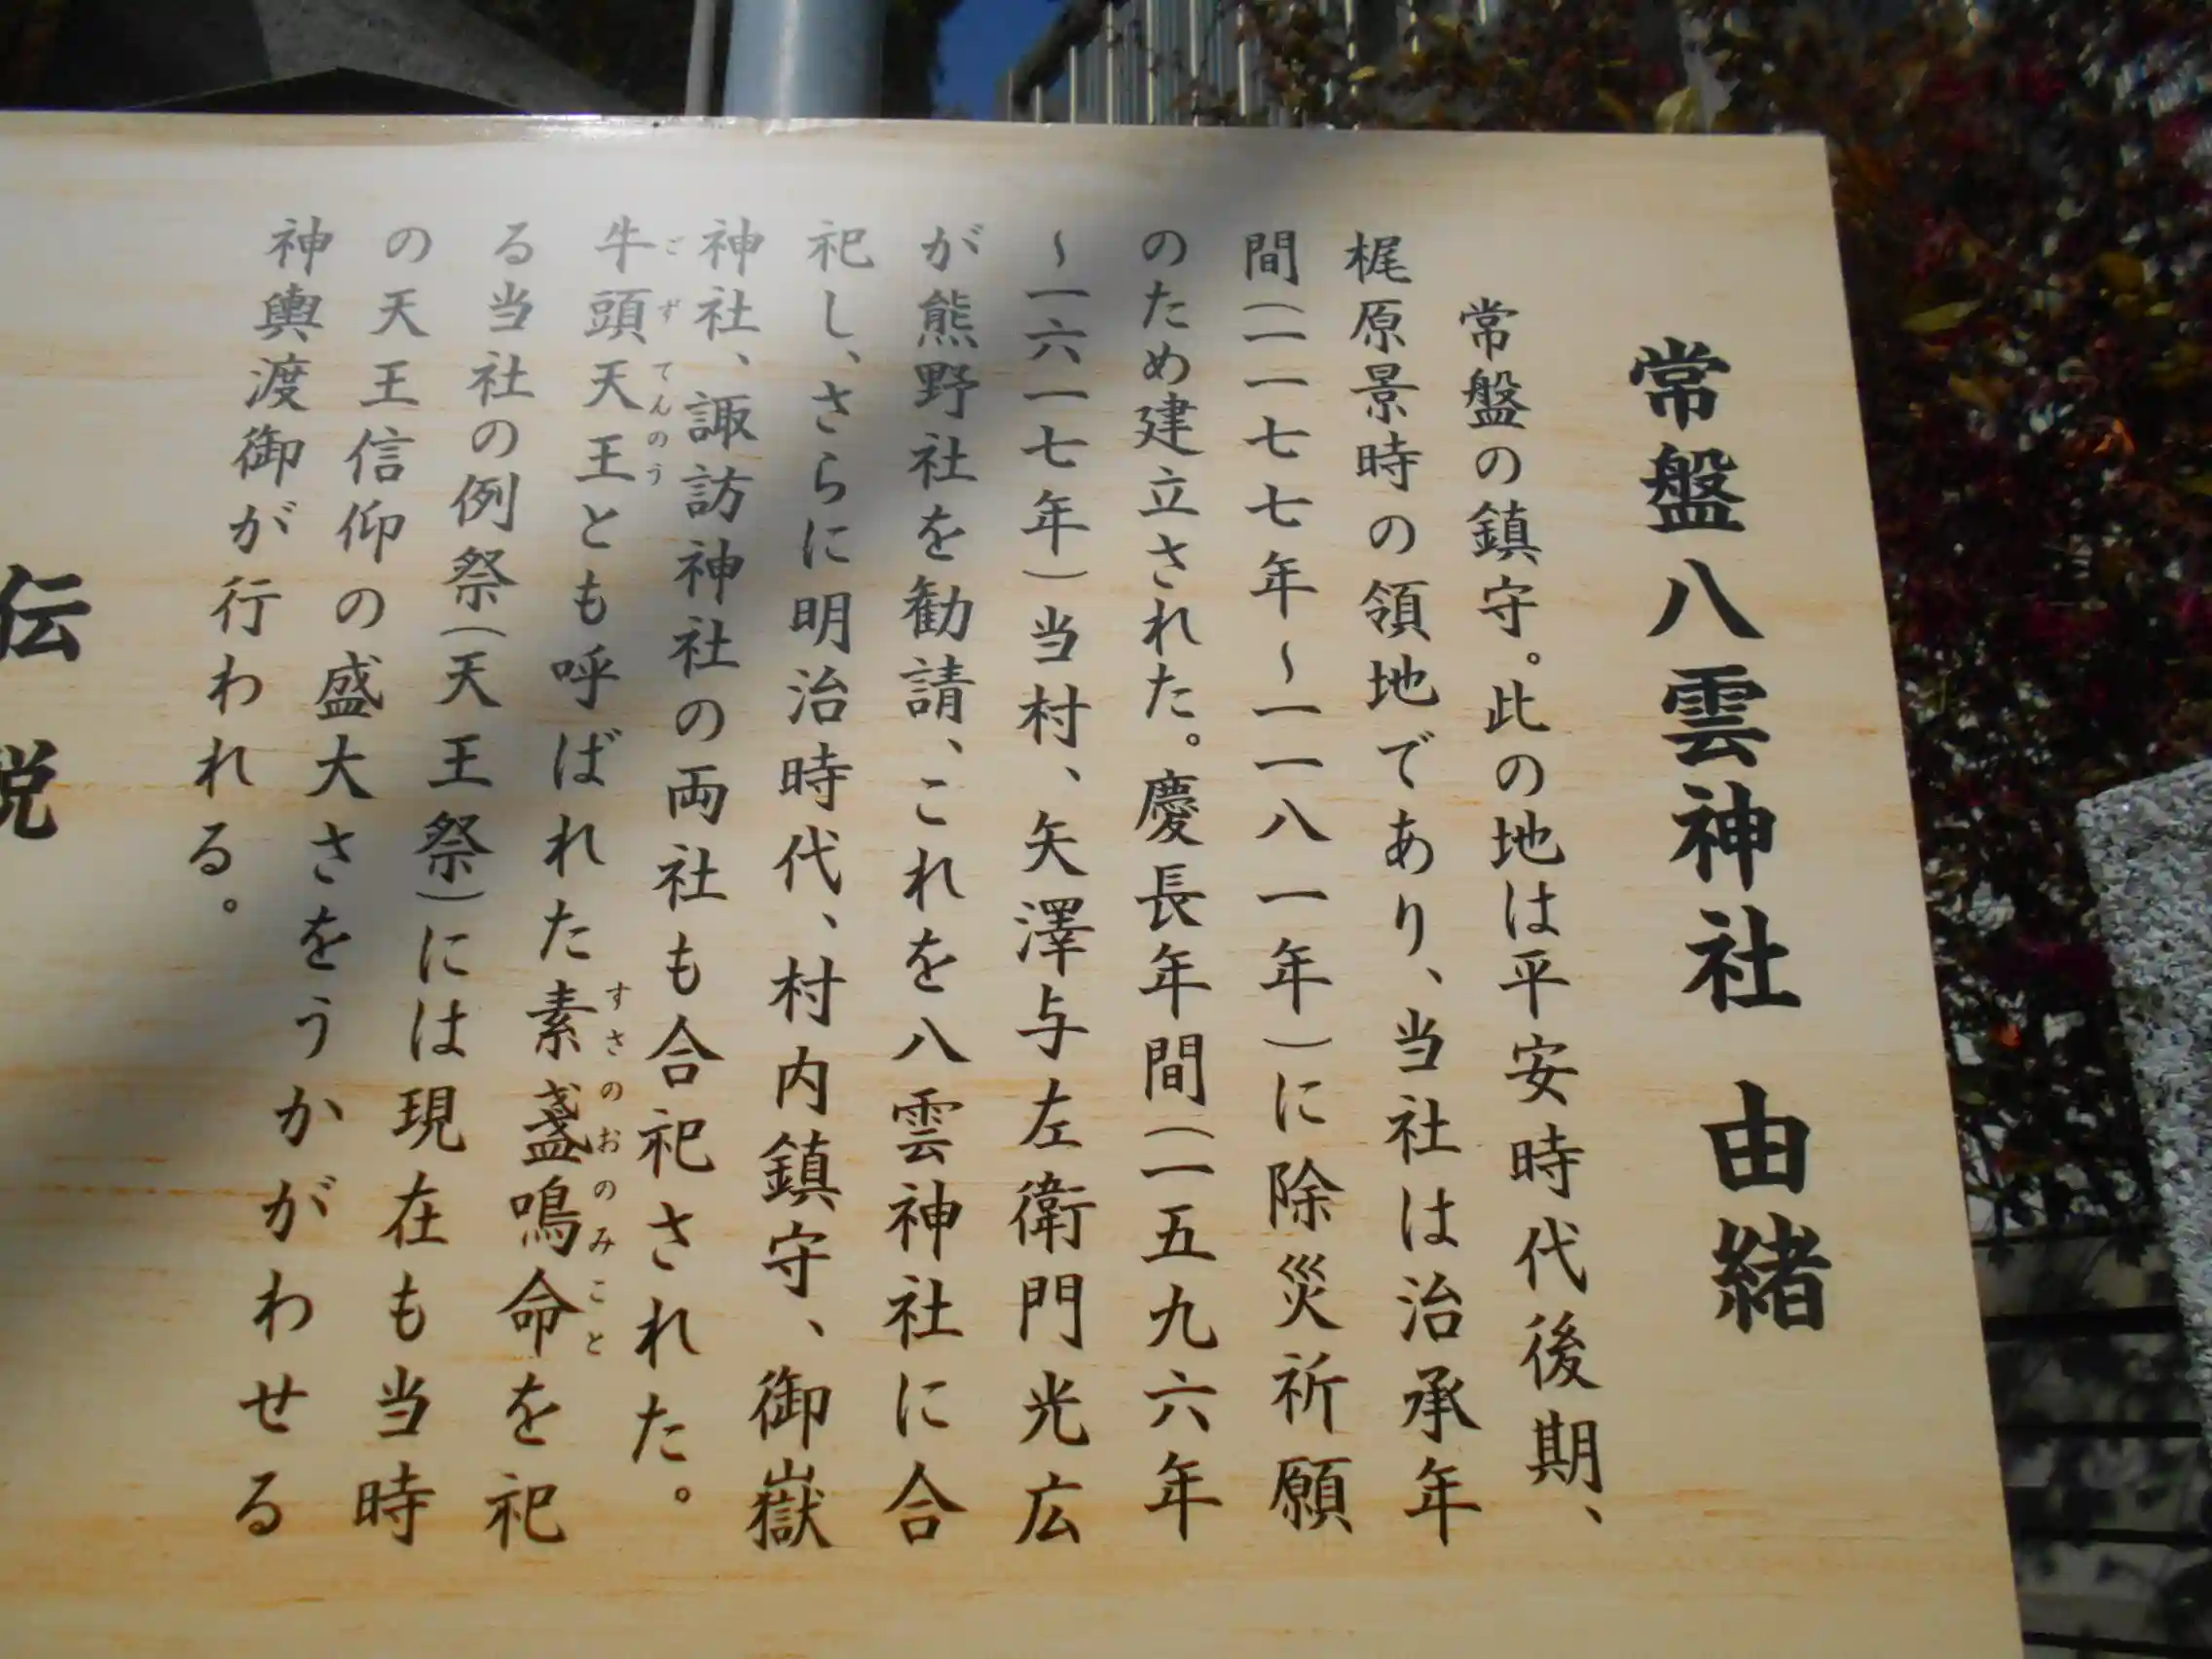 常盤八雲神社 由緒
常盤の鎮守。此の地は平安時代後期、
梶原景時の領地であり、当社は治承年
間(一一七七年~一一八一年)に除災祈願
のため建立された。慶長年間(一五九六年
~一六一七年)当村、矢澤与左衛門光広
が熊野社を勧請、これを八雲神社に合
祀し、さらに明治時代、村内鎮守、御嶽
神社、諏訪神社の両社も合祀された。
ごずてんのう
すさのおのみこと
牛頭天王とも呼ばれた素盞鳴命を祀
る当社の例祭(天王祭)には現在も当時
の天王信仰の盛大さをうかがわせる
神輿渡御が行われる。
伝説